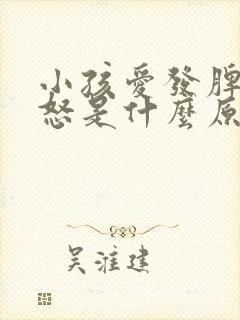 小孩愛發脾
怒是什麼原
吴淮建